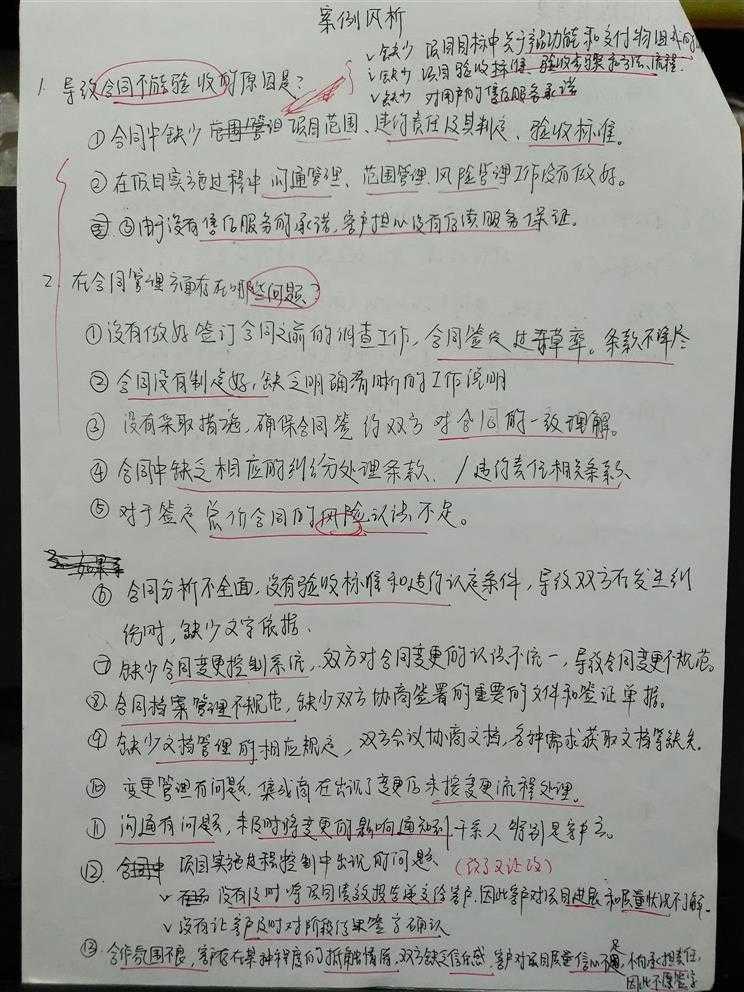 案例分析
✓缺少 项目目标中关于产品功能和交付物组成的
✓缺少 项目验收标准、验收步骤和方法、流程.
✓缺少 对用户的售后服务承诺
1. 导致合同不能验收的原因是?
①合同中缺少 项目范围、违约责任及其判定、验收标准。
②在项目实施过程中 沟通管理、范围管理、风险管理工作没有做好。
③由于没有售后服务的承诺,客户担心没有后续服务保证.
2. 在合同管理方面存在哪些问题?
①没有做好签订合同之前的调查工作,合同签定过于草率。条款不详尽
②合同没有制定好,缺乏明确清晰的工作说明
③没有采取措施,确保合同签约双方对合同的一致理解。
④合同中缺乏相应的纠纷处理条款、/违约责任相关条款
⑤对于签定总价合同的风险认识不足。
⑥合同分析不全面,没有验收标准和违约认定条件,导致双方在发生纠
纷时,缺少文字依据.
⑦缺少合同变更控制系统,双方对合同变更的认识不统一,导致合同变更不规范。
⑧合同档案管理不规范,缺少双方协商签署的重要的文件和签证单据。
⑨缺少文档管理的相应规定,双方会议协商文档,各种需求获取文档等缺失.
⑩变更管理有问题.集成商在出现了变更后未按变更流程处理。
⑪沟通有问题,未及时将变更的影响通知到干系人 特别是客户.
⑫项目实施过程控制中出现的问题
✓没有及时将项目绩效报告递交给客户.因此客户对项目进展和质量状况不了解.
✓没有让客户及时对阶段成果签字确认
⑬合作氛围不良,客户存在某种程度的抵触情绪,双方缺乏信任感.客户对项目质量信心不足,不愿承担责任,
因此不愿签字